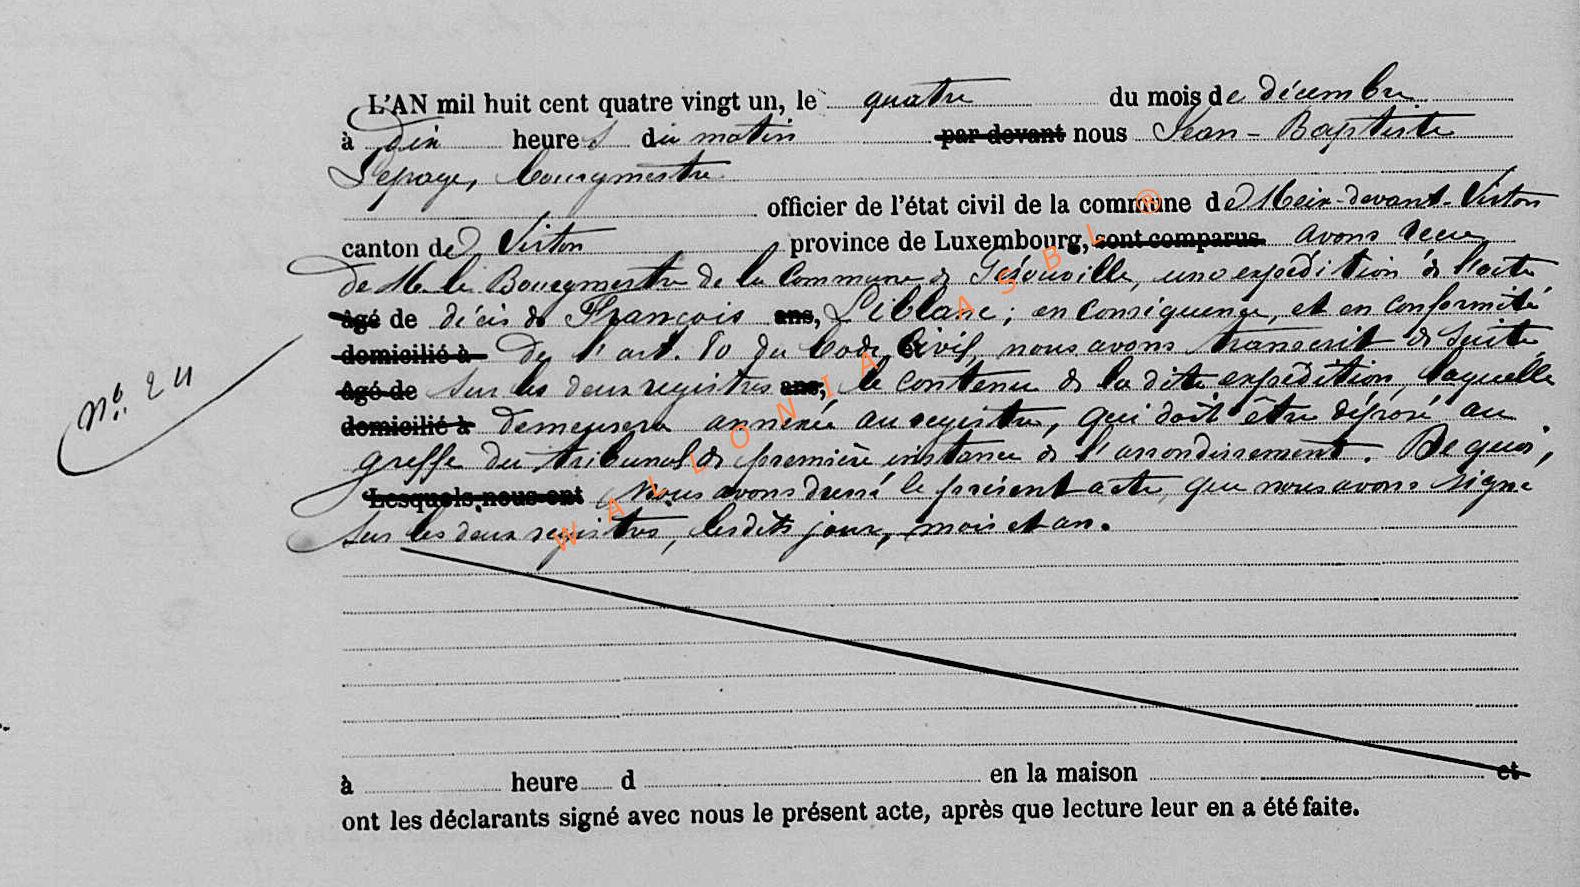 L'AN mil huit cent quatre vingt un, le quatre du mois de décembre
à dix heures du matin par devant nous Jean-Baptiste
Lepage, bourgmestre
officier de l'état civil de la commune de Meix-devant-Virton
canton de Virton province de Luxembourg, sont comparus avons recu
de M. le Bourgmestre de la Commune de Gérouville, une expédition de l'acte
âgé de décès de François ans, Leblanc; en conséquence, et en conformité
domicilié à De l'art. 80 du Code Civil, nous avons transcrit de suite
âgé de sur les deux registres ans, le contenu de la dite expédition, laquelle
domicilié à demeurera annexée au registre, qui doit être déposé au
greffe du tribunal de première instance de l'arrondissement. De quoi,
Lesquels nous ont Nous avons dressé le présent acte, que nous avons signé
sur les deux registres, lesdits jour, mois et an.
No 24
à heure d en la maison et
ont les déclarants signé avec nous le présent acte, après que lecture leur en a été faite.
WALLONIA ASBL ®